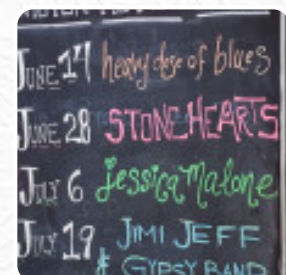 JUNE 14 heavy dose of blues
JUNE 28 STONEHEARTS
JULY 6 jessica malone
JULY 19 JIMI JEFF
& GYPSY BAND